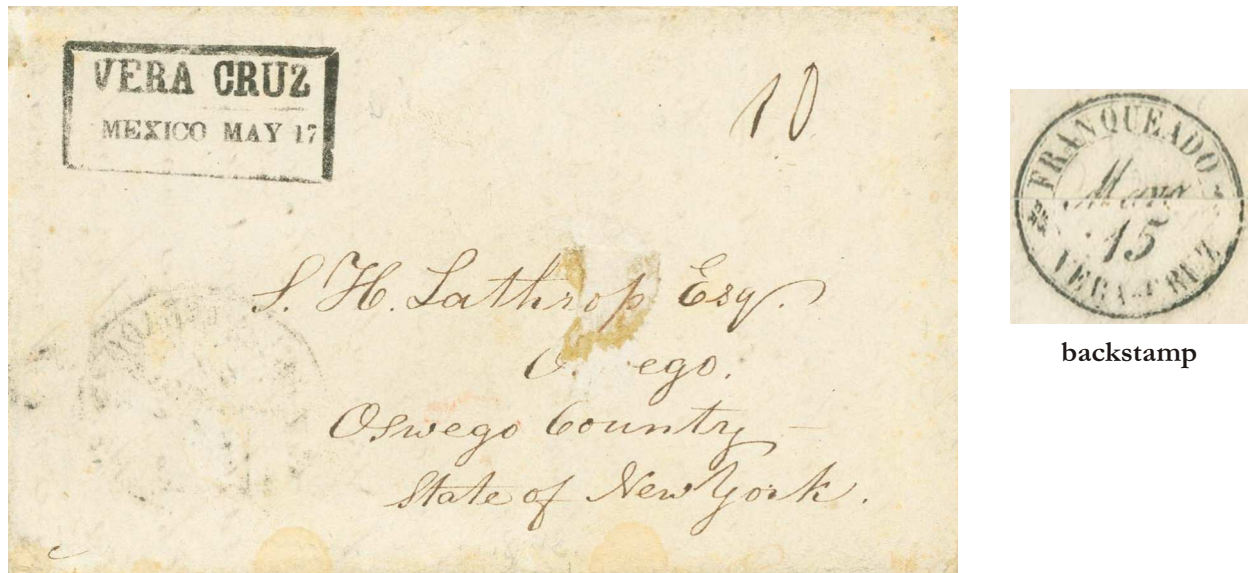 VERA CRUZ
MEXICO MAY 17
10
S. H. Lathrop Esq.
O ego.
Oswego Country
State of New York.
FRANQUEADO
Mayo
15
VERA-CRUZ
backstamp